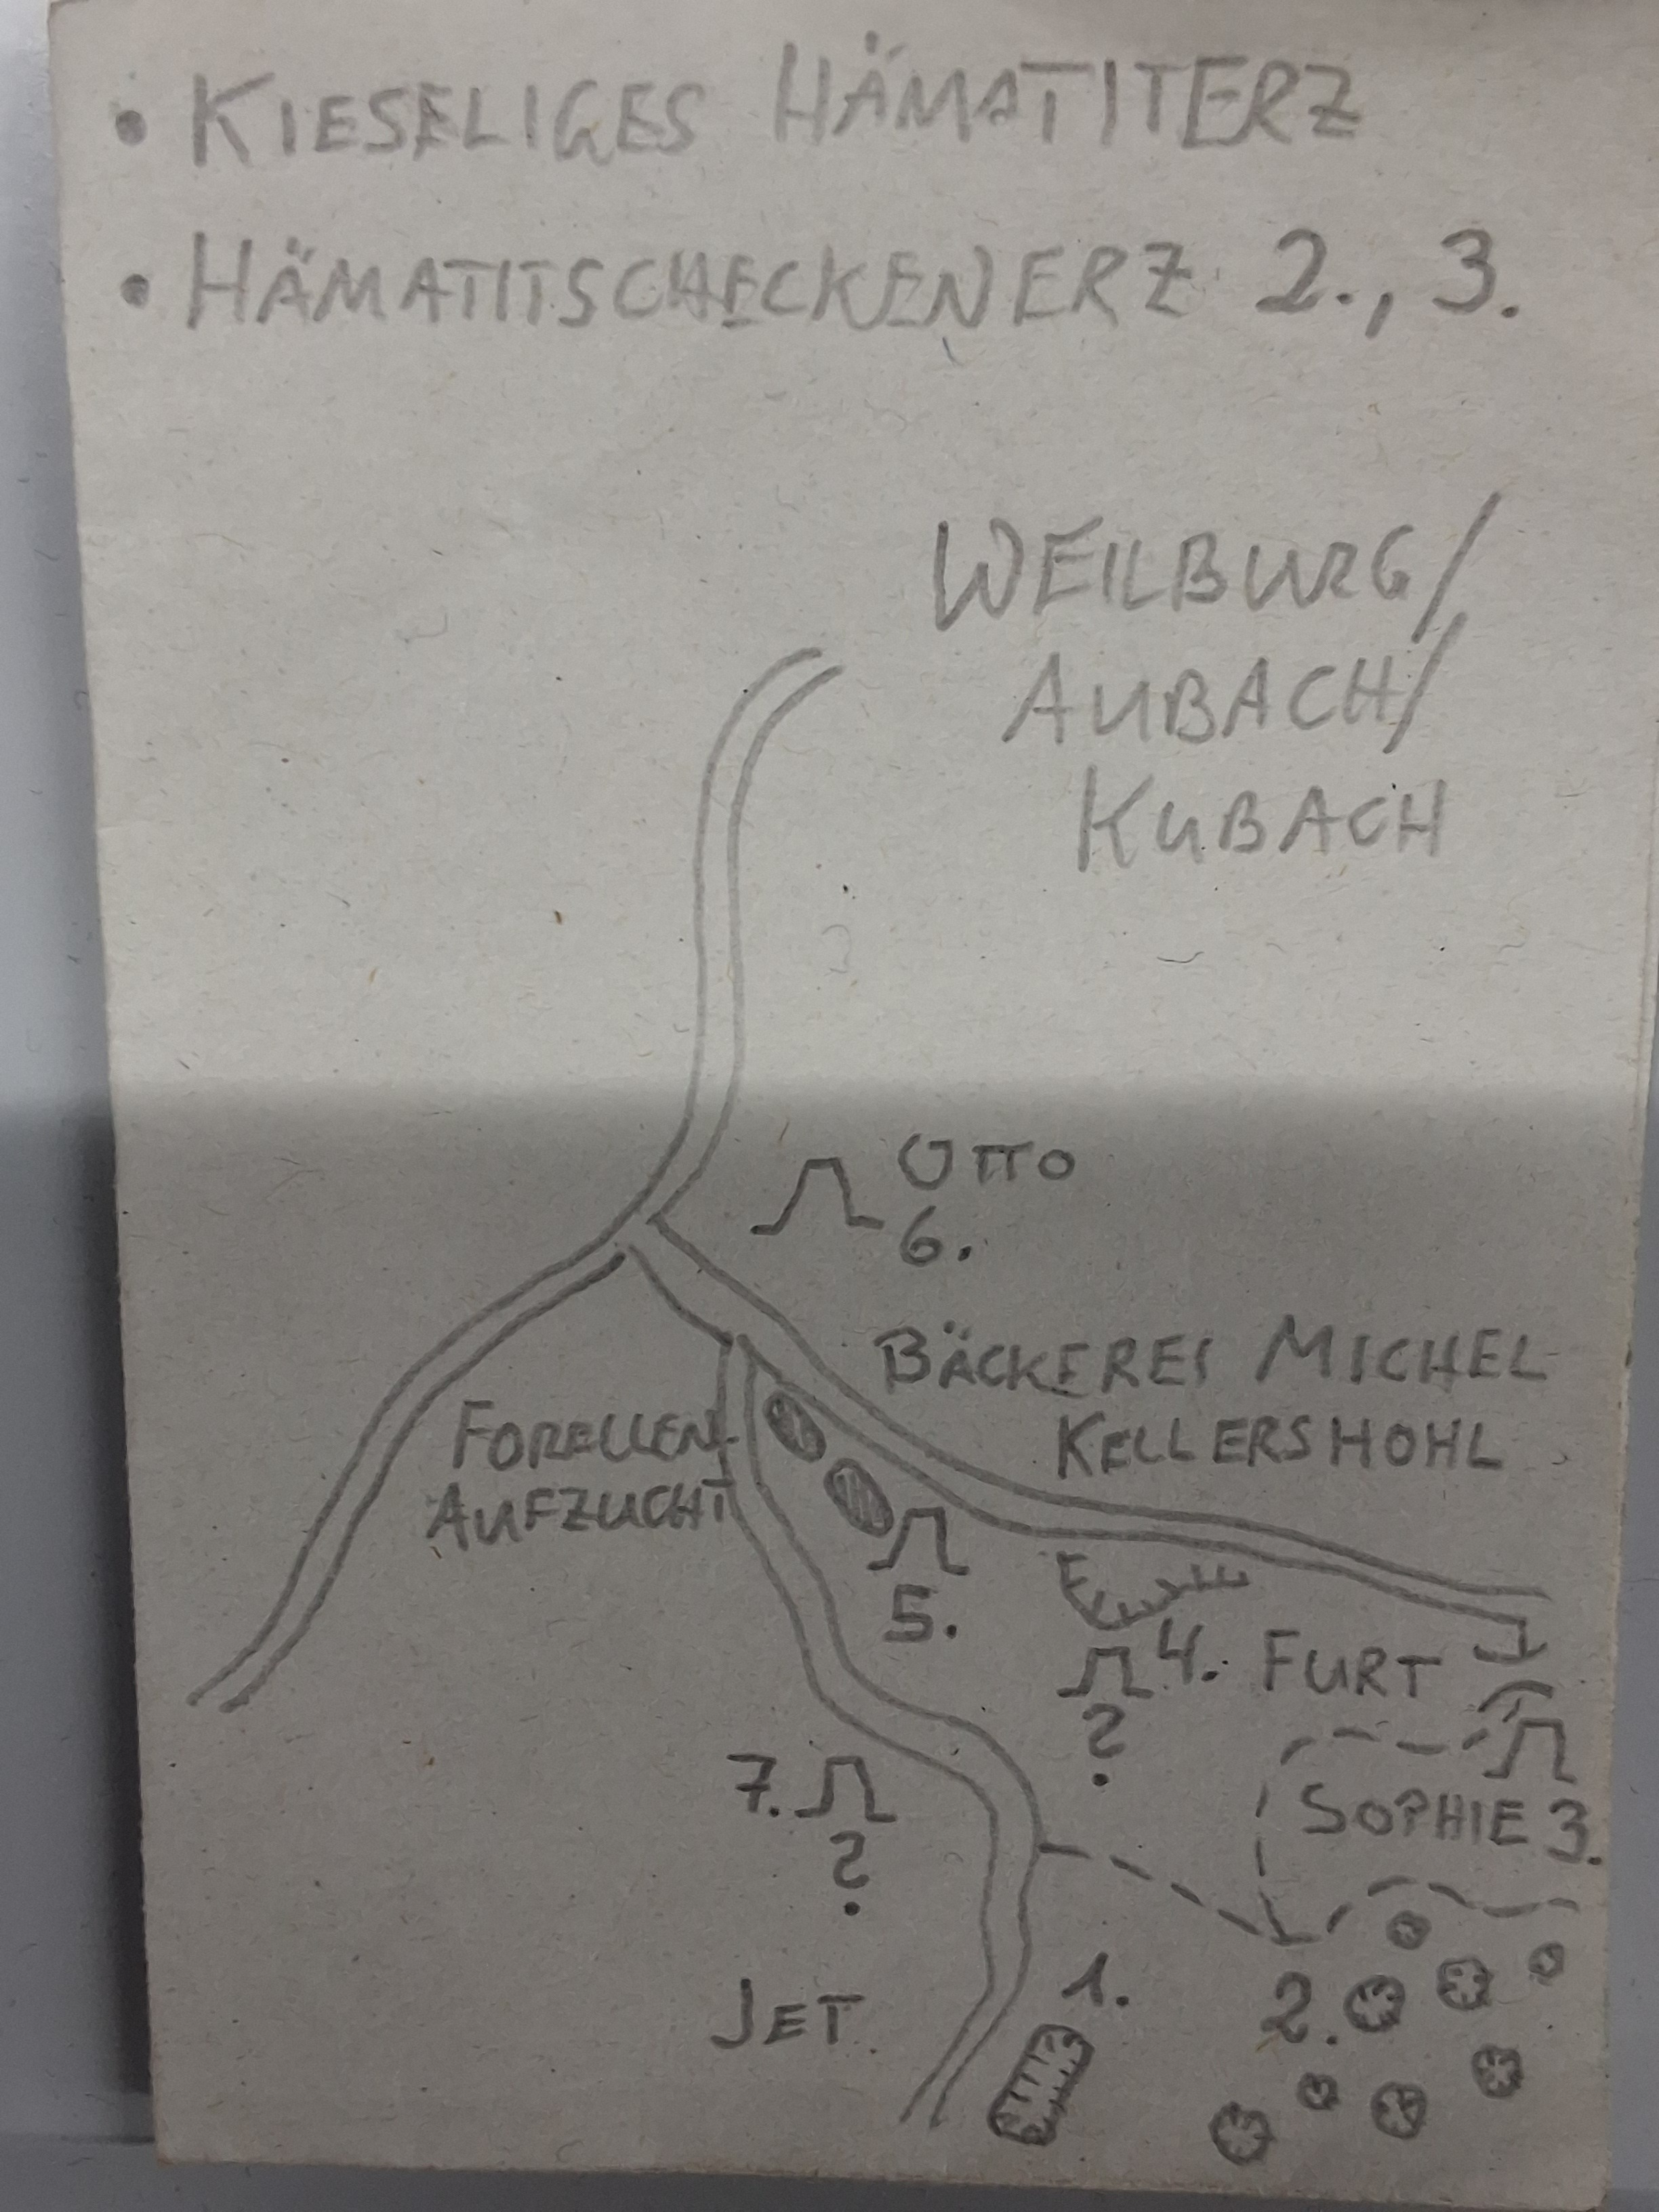 • KIESELIGES HÄMATITERZ
• HÄMATITSCHECKENERZ 2., 3.
WEILBURG/
AUBACH/
KUBACH
OTTO
6.
BÄCKEREI MICHEL
KELLERSHOHL
FORELLEN-
AUFZUCHT
5.
4. FURT
?
7.
?
SOPHIE 3.
1.
JET
2.